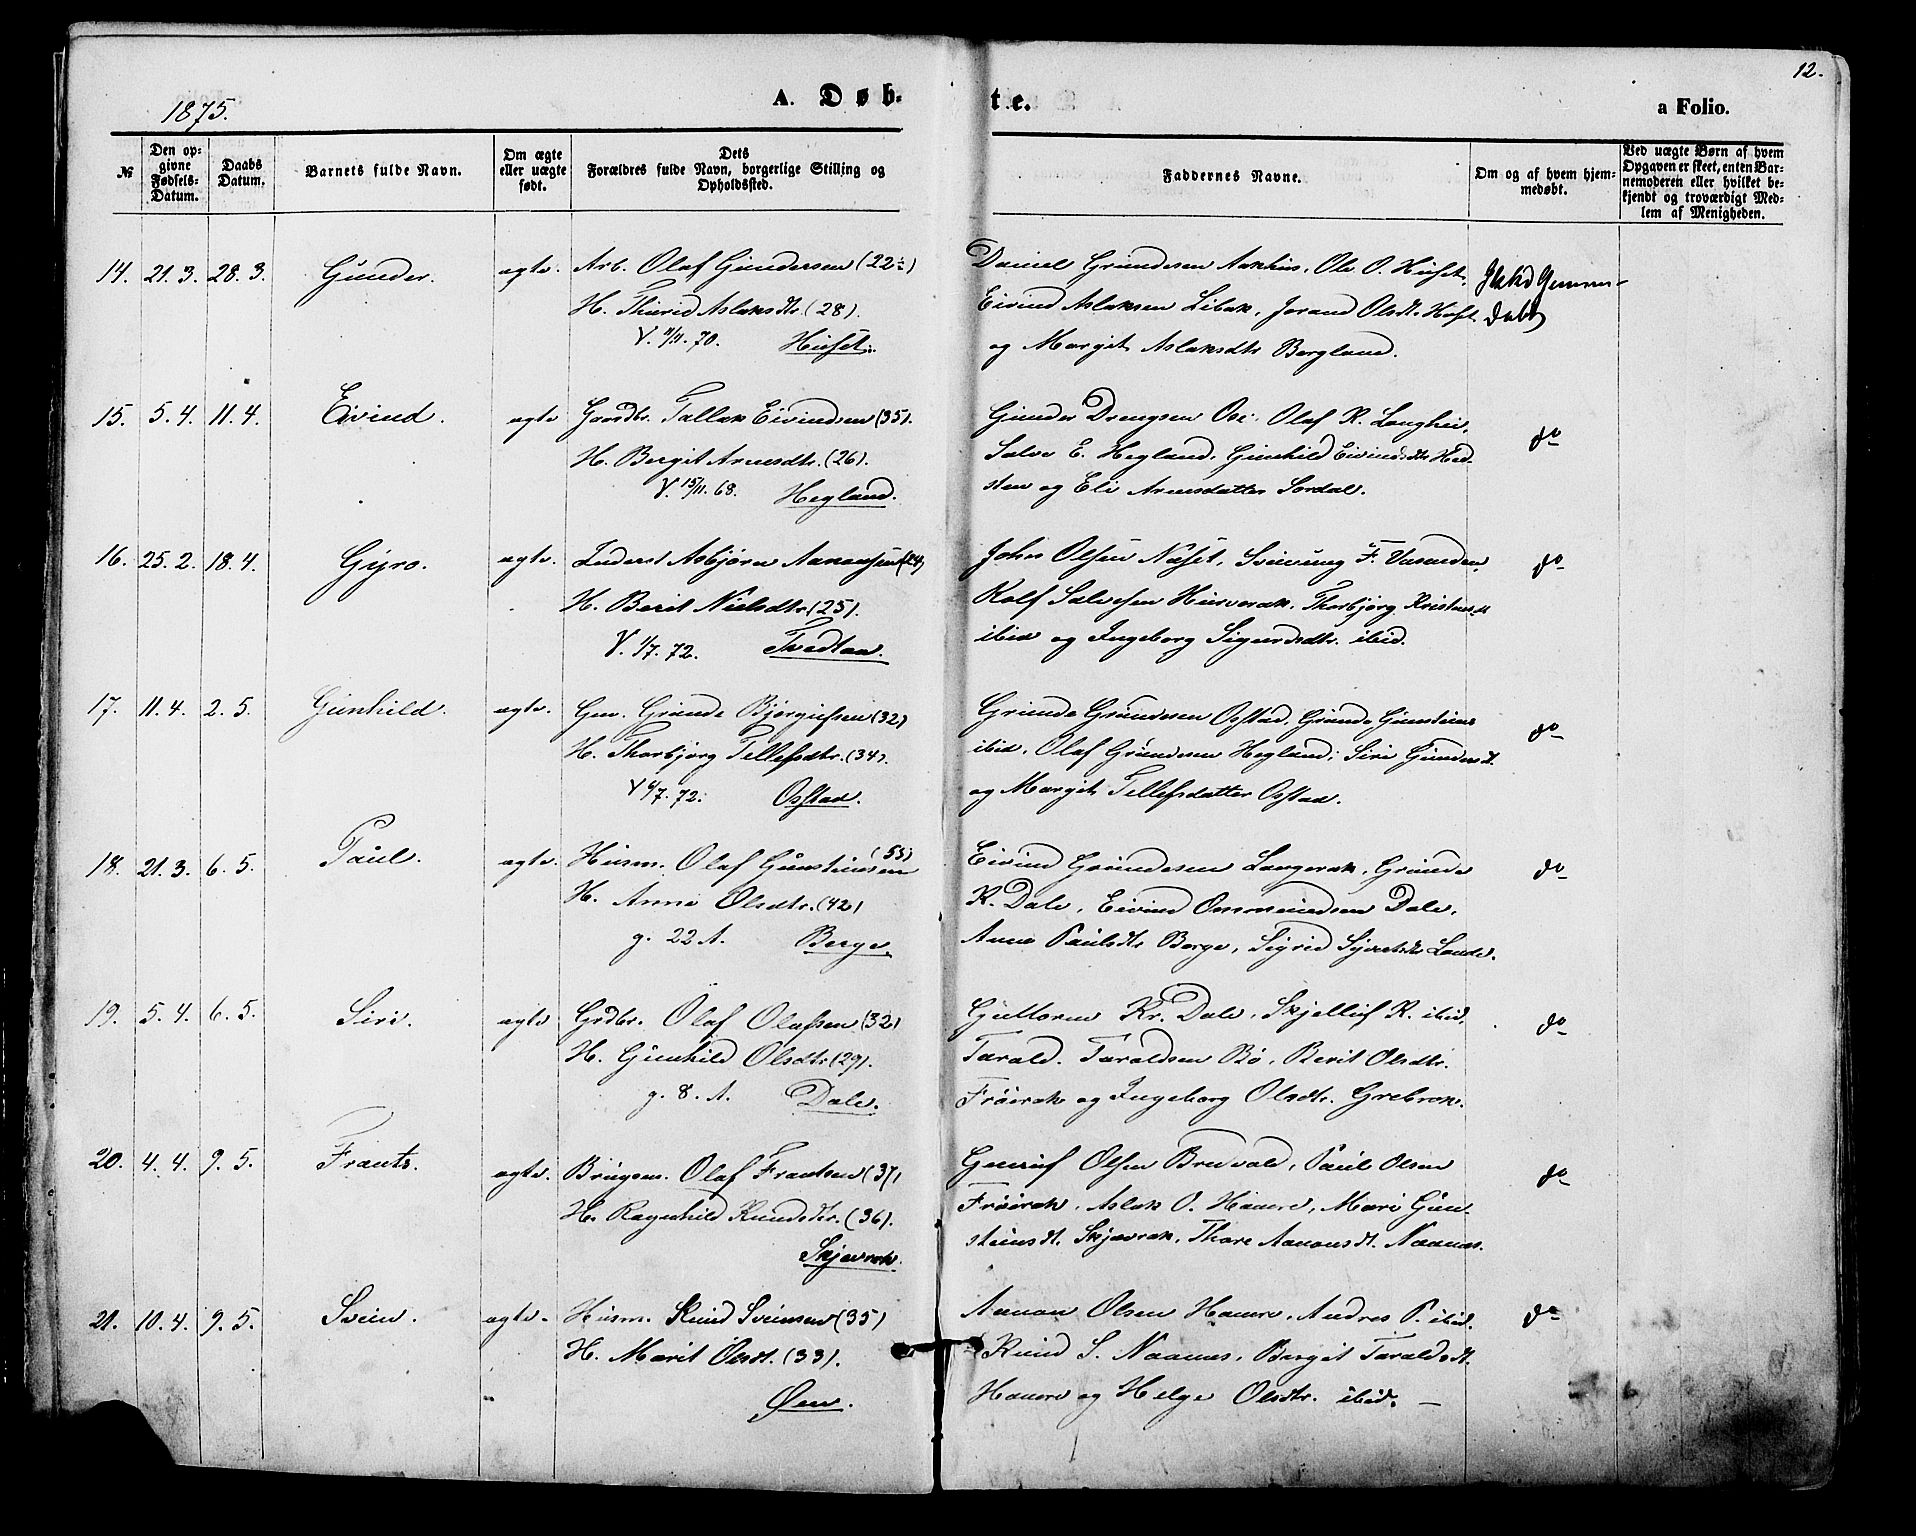 12.
1875.
A. Døb-
te.
a Folio.
№
Den op-
givne
Fødsels-
Datum.
Daabs
Datum.
Barnets fulde Navn.
Om ægte
eller uægte
født.
Dets
Forældres fulde Navn, borgerlige Stilling og
Opholdssted.
Faddernes Navne.
Om og af hvem hjem-
medøbt.
Ved uægte Børn af hvem
Opgaven er skeet, enten Bar-
nemoderen eller hvilket be-
kjendt og troværdigt Med-
lem af Menigheden.
14. 21. 3. 28. 3. Gunder. ægte. Arb. Olaf Gundersen (22½)
H. Thurid Aslaksdtr. (28).
V. 11/11. 70. Huset.
Daniel Grundesen Aakhus, Ole O. Huset,
Eivind Aslaksen Libak, Jorand Olsdt. Huset
og Margit Aslaksdtr Bergland.
Ikke hjemme-
døbt
15. 5. 4. 11. 4. Eivind. ægte Gaardbr. Tallak Eivindsen (35).
H. Bergit Arnesdtr. (26).
V. 15/11. 68. Hegland.
Gunder Drengsen Ose. Olaf K. Langhei,
Salve E. Hegland, Gunhild Eivindsdtr Hed-
sten og Eli Arnesdatter Sordal.
do
16. 25. 2. 18. 4. Gyro. ægte. Inderst Asbjørn Aanonsen (24)
H. Berit Nielsdtr (25).
V. 1/7. 72. Tvedtan.
John Olsen Næset, Sveinung F. Vasenden,
Rolf Salvesen Husverak, Thorbjørg Kristensdt
ibid og Ingeborg Sigurdsdtr. ibid.
do
17. 11. 4. 2. 5. Gunhild. ægte. Gm. Grunde Bjørgufsen (32)
H. Thorbjørg Tellefsdtr. (34).
V 6/7. 72. Ogstad.
Grunde Grundesen Ogstad, Grunde Gunsteins
ibid, Olaf Grundesen Hegland, Siri Gundersdt.
og Margit Tellefsdatter Ogstad.
do
18. 21. 3. 6. 5. Paul. ægte. Husm. Olaf Gunsteinsen (55)
H. Anne Olsdtr. (42)
g. 22 A. Berge.
Eivind Grundesen Langerak, Grunde
K. Dale, Eivind Ommundsen Dale,
Anne Paulsdtr Berge, Sigrid Syvertsdtr Lande.
do
19. 5. 4. 6. 5. Siri. ægte Grdbr. Olaf Olafsen (32)
H. Gunhild Olsdtr (29).
g. 8. A. Dale.
Guttorm Kr. Dale, Skjelluf K. ibid,
Tarald Taraldsen Bø, Berit Olsdtr.
Frøirak og Ingeborg Olsdtr. Grebrok.
do
20. 4. 4. 9. 5. Frants. ægte. Brugsm. Olaf Frantsen (37)
H. Ragnhild Knudsdtr. (36).
Skjævrak.
Gunuf Olsen Bruvold, Paul Olsen
Frøirak, Aslak O. Haure, Mari Gun-
steinsdt. Skjævrak, Thore Aanonsdt. Naanes.
do
21. 10. 4. 9. 5. Svein. ægte. Husm. Knud Sveinsen (35)
H. Marit Olsdt. (33).
Øen.
Aanon Olsen Haure, Andres P. ibid.
Knud S. Naanes, Bergit Taraldsdt.
Haure og Helge Olsdtr. ibid. —
do